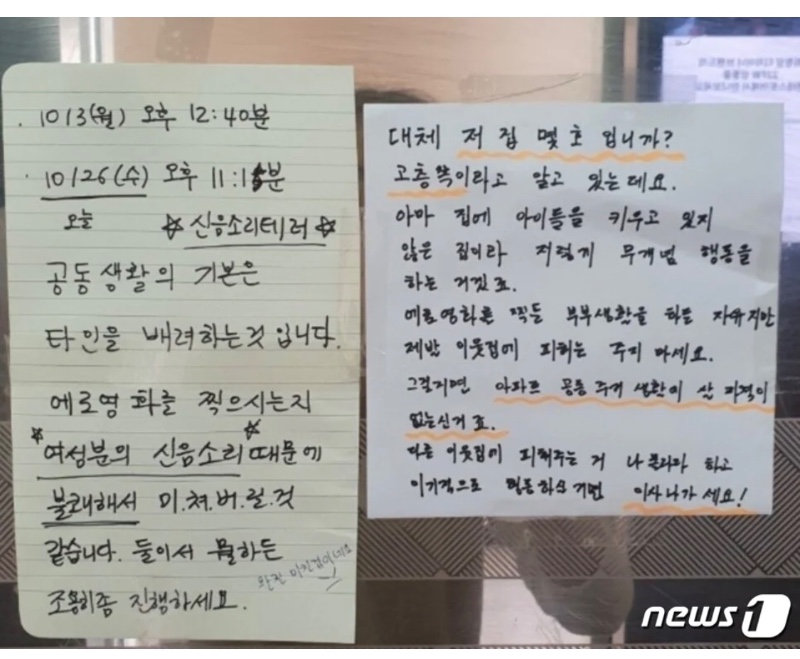 10/3(월) 오후 12:40분
10/26(수) 오후 11:15분
오늘 ☆신음소리테러☆
공동생활의 기본은
타인을 배려하는것 입니다.
에로영화를 찍으시는지
☆여성분의 신음소리☆때문에
불쾌해서 미.쳐.버.릴.것
같습니다. 둘이서 뭘하든
조용히좀 진행하세요.
완전 미친겁이네요
대체 저 집 몇 호 입니까?
고층쪽이라고 알고 있는데요.
아마 집에 아이들을 키우고 있지
않은 집이라 저렇게 무개념 행동을
하는 거겠죠.
에로영화를 찍든 부부생활을 하든 자유지만
제발 이웃집에 피해는 주지 마세요.
그럴거면 아파트 공동 주거 생활이 살 자격이
없는신거죠.
다른 이웃집이 피해주는 거 나몰라라 하고
이기적으로 행동하실거면 이사 나가세요!
news1